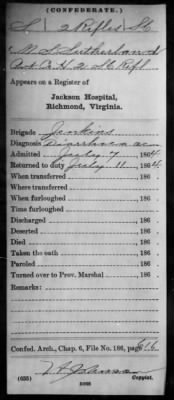 (CONFEDERATE.)
S. 2 Rifles S.C.
M. S. Sutherland
Co. H. 2 St. Rifl
Appears on a Register of
Jackson Hospital,
Richmond, Virginia.
Brigade Jenkins
Diagnosis Diarrhoea ac
Admitted July 7, 1864
Returned to duty July 11, 1864
When transferred , 186
Where transferred
When furloughed , 186
Time furloughed
Discharged , 186
Deserted , 186
Died , 186
Taken the oath , 186
Paroled , 186
Turned over to Prov. Marshal , 186
Remarks:
Confed. Arch., Chap. 6, File No. 186, page 616
(635)
Copyist.